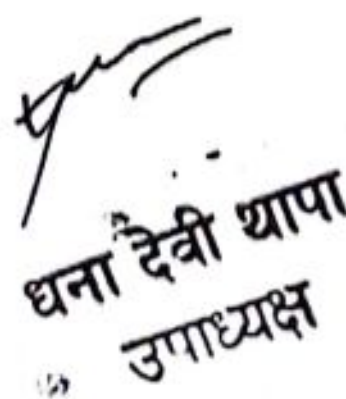 धना देवी थापा
उपाध्यक्ष